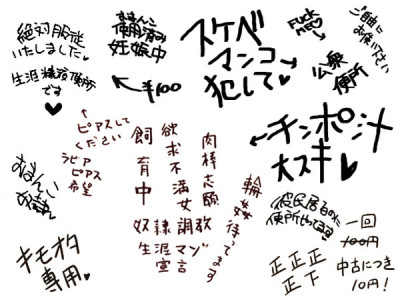 絶対服従
いたしました♥
生涯精液便所
です
♥
おまんこ
使用済み
妊娠中
←¥100
スケベ
マンコ
犯して♥
Fuck
me♡
公衆
便所
ご自由に
お使いください
↑
ピアスして
ください
ラビア
ピアス
希望
←チンポ汁
大スキ♥
おまんこ
奴隷
キモオタ
専用♥
輪姦待ってます
肉棒志願
欲求不満女
飼育中
奴隷宣言
彼氏居るのに
便所やってます
正正正
正下
一回
100円
中古につき
10円!